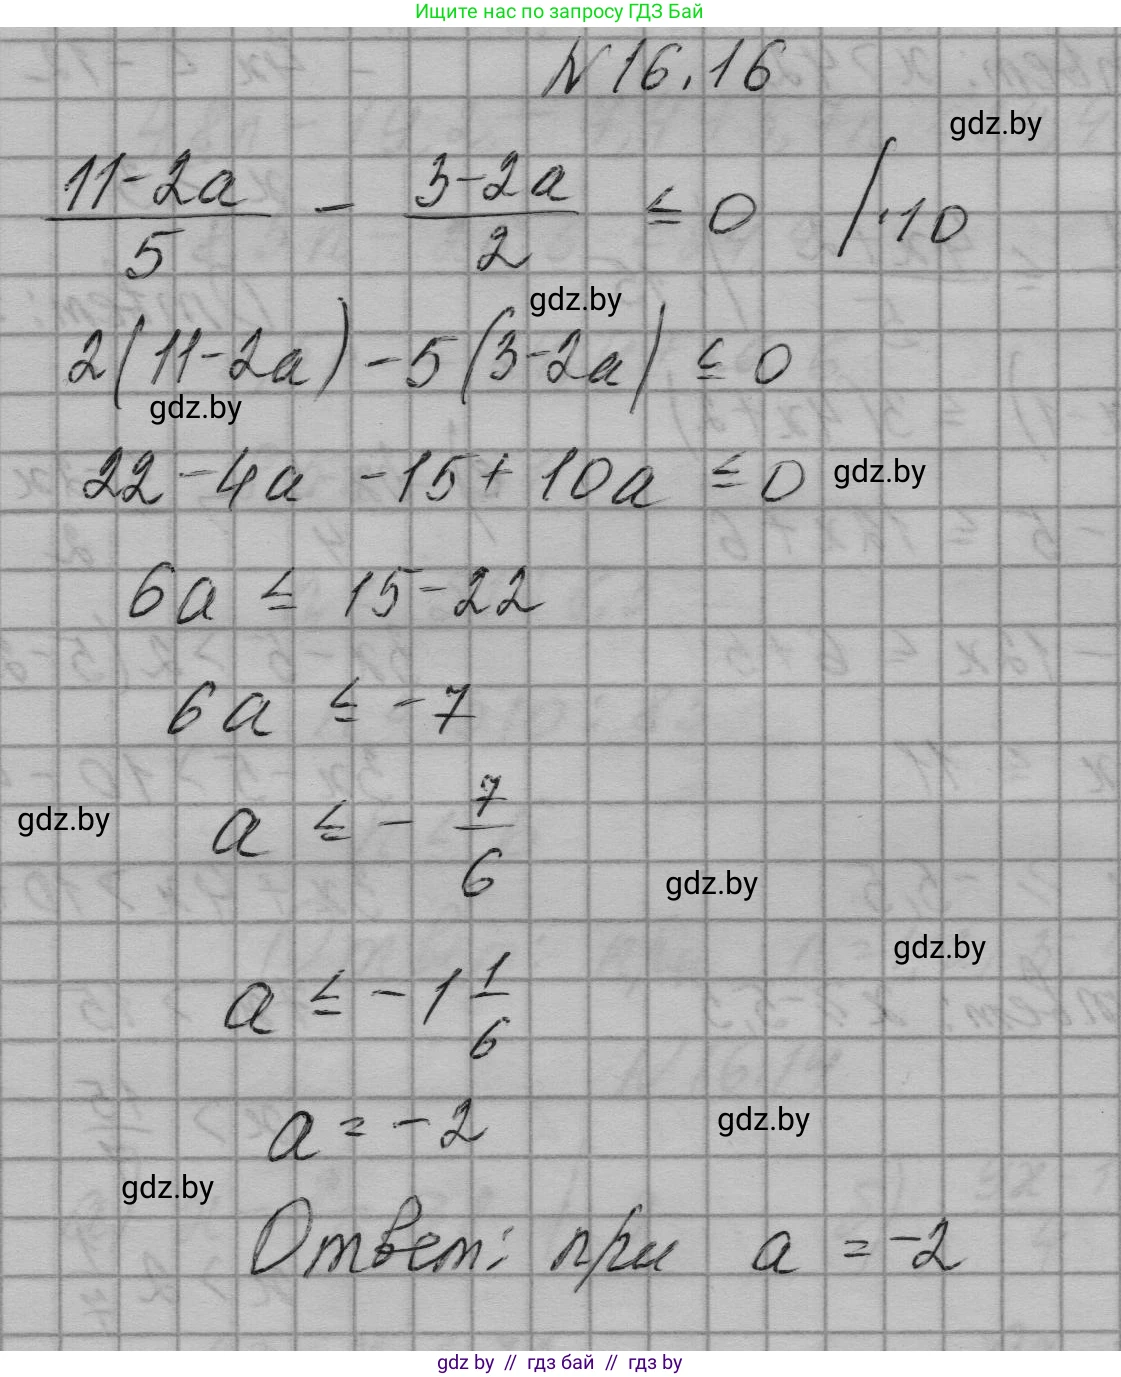 Ищите нас по запросу ГДЗ Бай
N 16.16
gdz.by
(11-2a)/5 - (3-2a)/2 ≤ 0 /·10
gdz.by
2(11-2a)-5(3-2a) ≤ 0
gdz.by
22-4a-15+10a ≤ 0 gdz.by
6a ≤ 15-22
6a ≤ -7
gdz.by a ≤ - 7/6
gdz.by
gdz.by
a ≤ -1 1/6
a = -2 gdz.by
gdz.by
Ответ: при a = -2
gdz by // гдз бай // гдз by